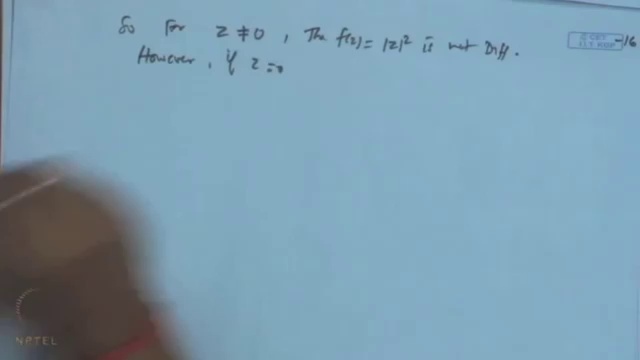 So For z ≠ 0, The f(z) = |z|² is not Diff.
However, if z = 0
-16
NPTEL